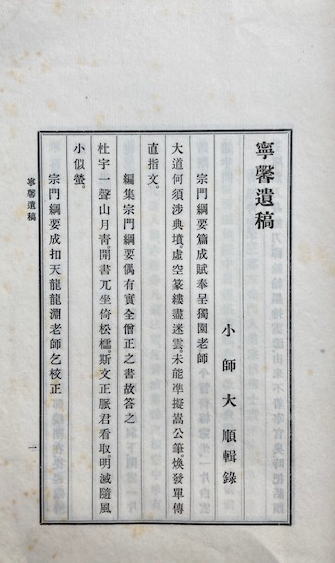 寧馨遺稿
小師大順輯錄
宗門綱要篇成賦奉呈獨園老師
大道何須涉典墳。虛空篆縷盡迷雲。未能準擬嵩公筆。煥發單傳
直指文。
編集宗門綱要偶有實全僧正之書故答之
杜宇一聲山月靑。開書兀坐倚松櫺。斯文正脈君看取。明滅隨風
小似螢。
宗門綱要成扣天龍龍淵老師乞校正
寧馨遺稿
一